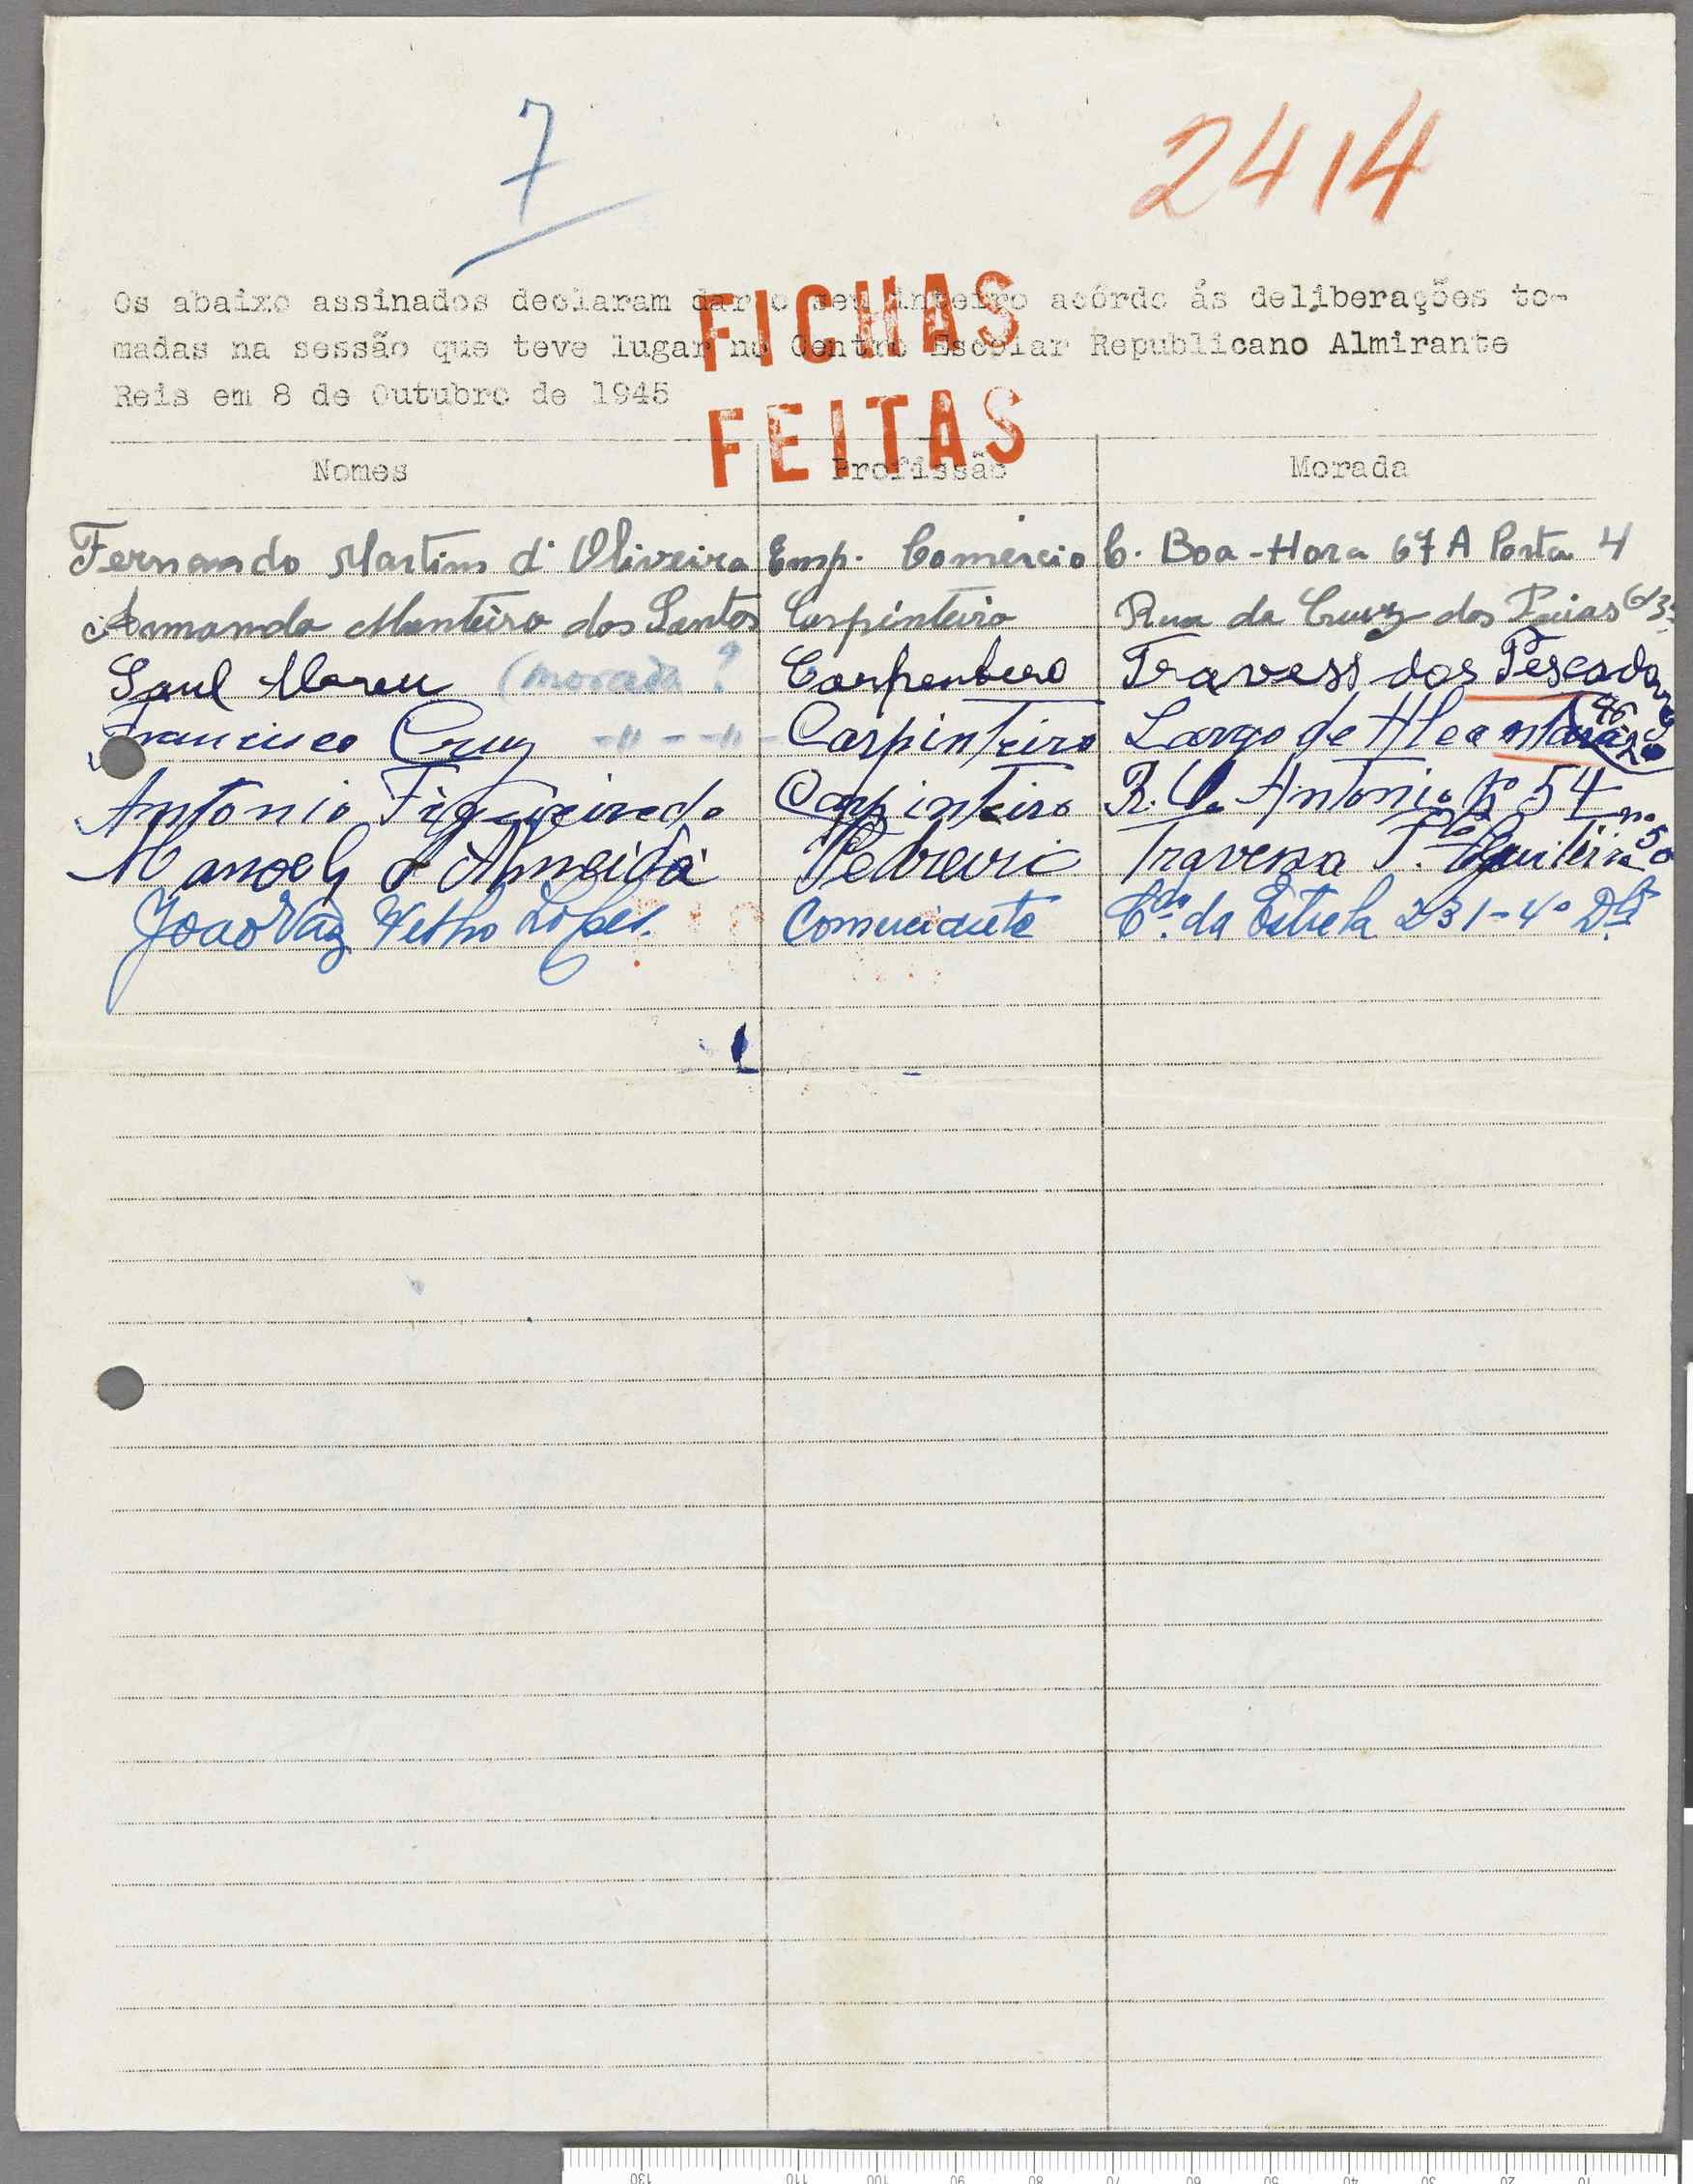 7
2414
Os abaixo assinados declaram dar o seu inteiro acórdo ás deliberações to-
madas na sessão que teve lugar no Centro Escolar Republicano Almirante
Reis em 8 de Outubro de 1945
FICHAS
FEITAS
Nomes Profissão Morada
Fernando Martins d'Oliveira Emp. Comércio C. Boa-Hora 67 A Porta 4
Armando Monteiro dos Santos Carpinteiro Rua da Cruz dos
Saul (morada ? Carpenteiro Travess dos Pescadores
Francisco Cruz -"- -"- Carpinteiro Largo de Alcantara
Antonio Figueiredo Carpinteiro R. Antonio 54
Manoel d'Almeida Pedreiro Travessa nº 50
João Vaz Velho Lopes. Comerciante Cda. da Estrela 231-4º Dto